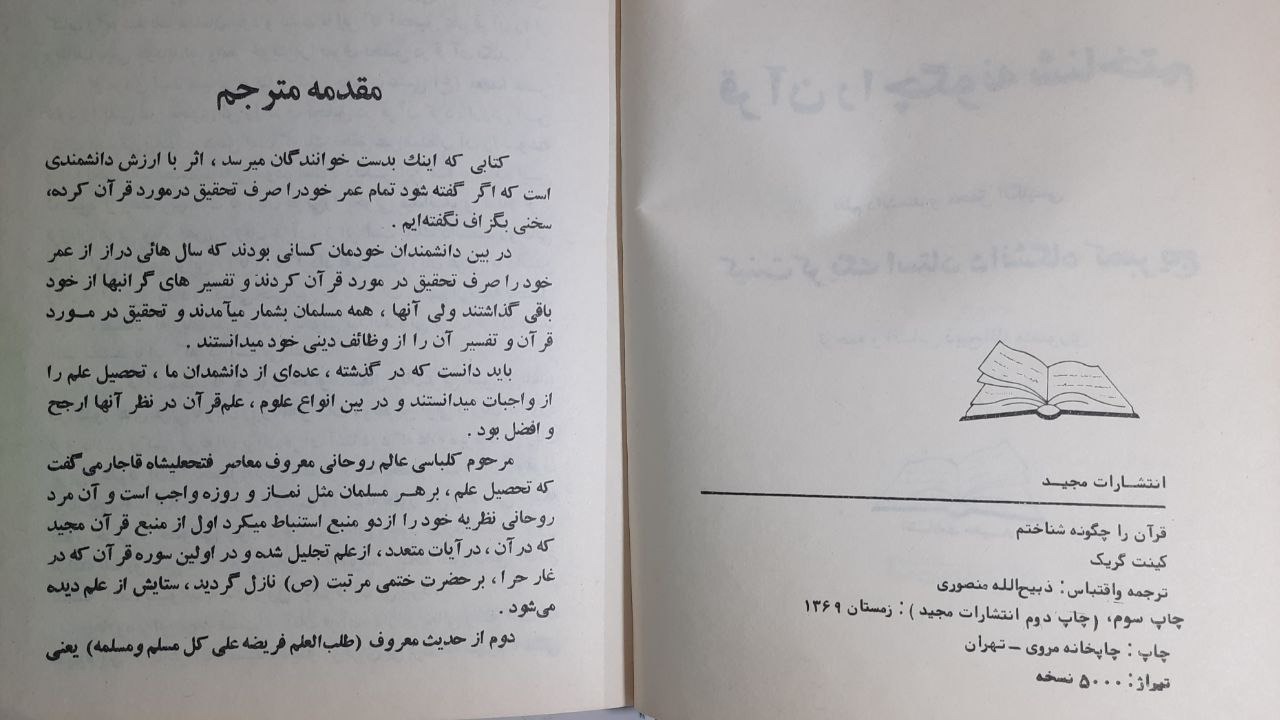 انتشارات مجید
قرآن را چگونه شناختم
کینت گریک
ترجمه واقتباس: ذبیح‌الله منصوری
چاپ سوم، (چاپ دوم انتشارات مجید): زمستان ۱۳۶۹
چاپ: چاپخانه مروی ــ تهران
تیراژ: ۵۰۰۰ نسخه
مقدمه مترجم
کتابی که اینك بدست خوانندگان میرسد، اثر با ارزش دانشمندی
است که اگر گفته شود تمام عمر خودرا صرف تحقیق درمورد قرآن کرده،
سخنی بگزاف نگفته‌ایم.
در بین دانشمندان خودمان کسانی بودند که سال هائی دراز از عمر
خود را صرف تحقیق در مورد قرآن کردند و تفسیر های گرانبها از خود
باقی گذاشتند ولی آنها، همه مسلمان بشمار میآمدند و تحقیق در مورد
قرآن و تفسیر آن را از وظائف دینی خود میدانستند.
باید دانست که در گذشته، عده‌ای از دانشمدان ما، تحصیل علم را
از واجبات میدانستند و در بین انواع علوم، علم‌قرآن در نظر آنها ارجح
و افضل بود.
مرحوم کلباسی عالم روحانی معروف معاصر فتحعلیشاه قاجارمی‌گفت
که تحصیل علم، برهر مسلمان مثل نماز و روزه واجب است و آن مرد
روحانی نظریه خود را ازدو منبع استنباط میکرد اول از منبع قرآن مجید
که درآن، درآیات متعدد، ازعلم تجلیل شده و در اولین سوره قرآن که در
غار حرا، برحضرت ختمی مرتبت (ص) نازل گردید، ستایش از علم دیده
می‌شود.
دوم از حدیث معروف (طلب‌العلم فریضه علی کل مسلم ومسلمه) یعنی